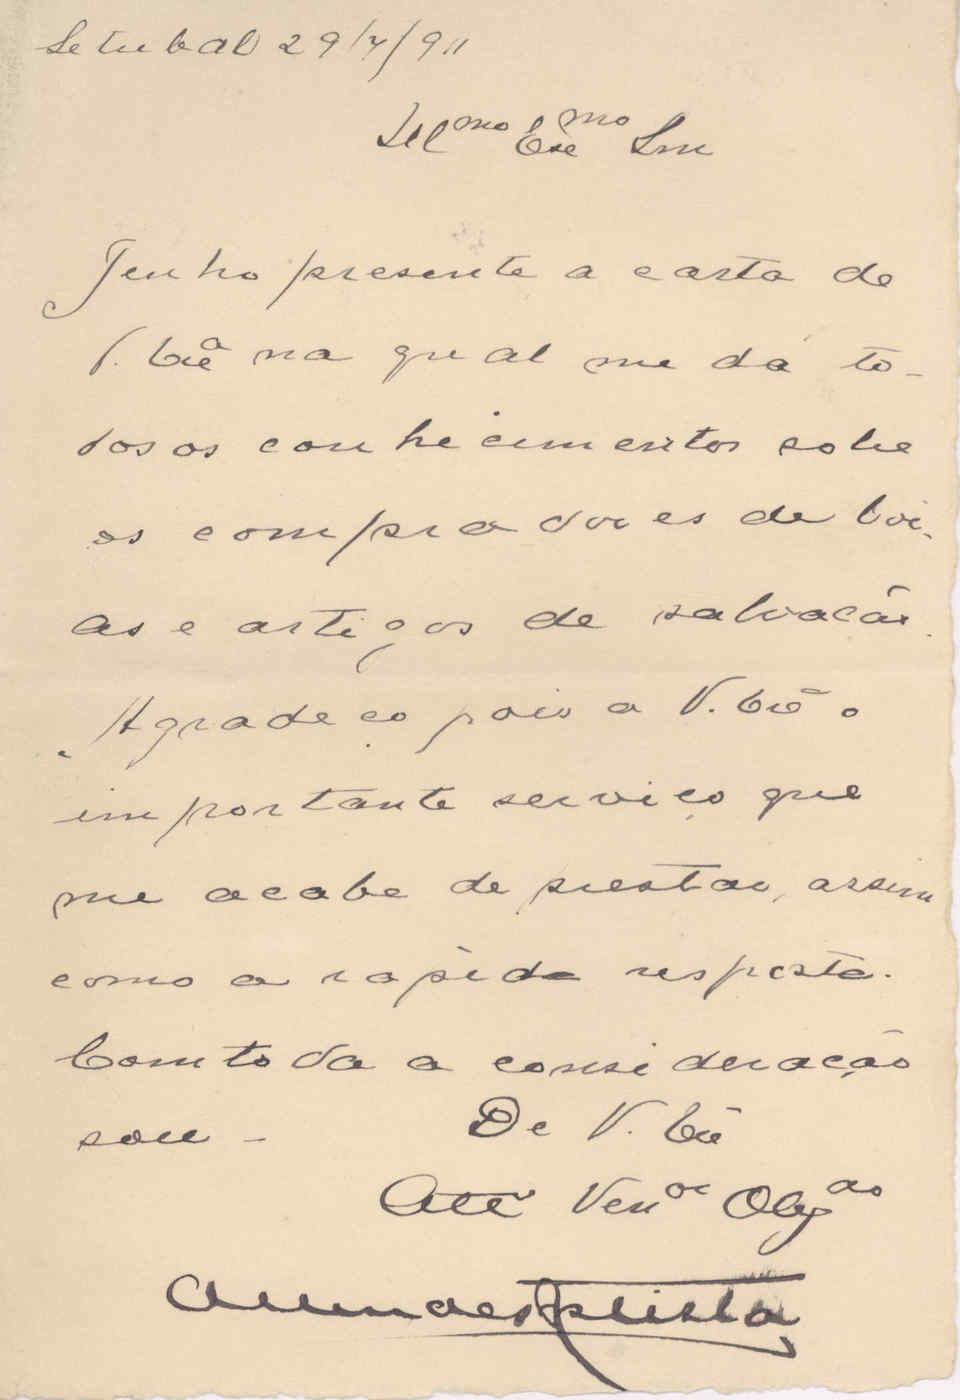 Setubal 29/7/911
Ill^mo Exe^mo Snr
Tenho presente a carta de
V. Exª na qual me dá to-
dos os conhecimentos sobre
os compradores de boi-
as e artigos de salvacão.
Agradeço pois a V. Exª o
importante serviço que
me acabe de prestar, assim
como a rapida resposta.
Com toda a consideração
sou - De V. Exª
Attº Ven^or Obg^do